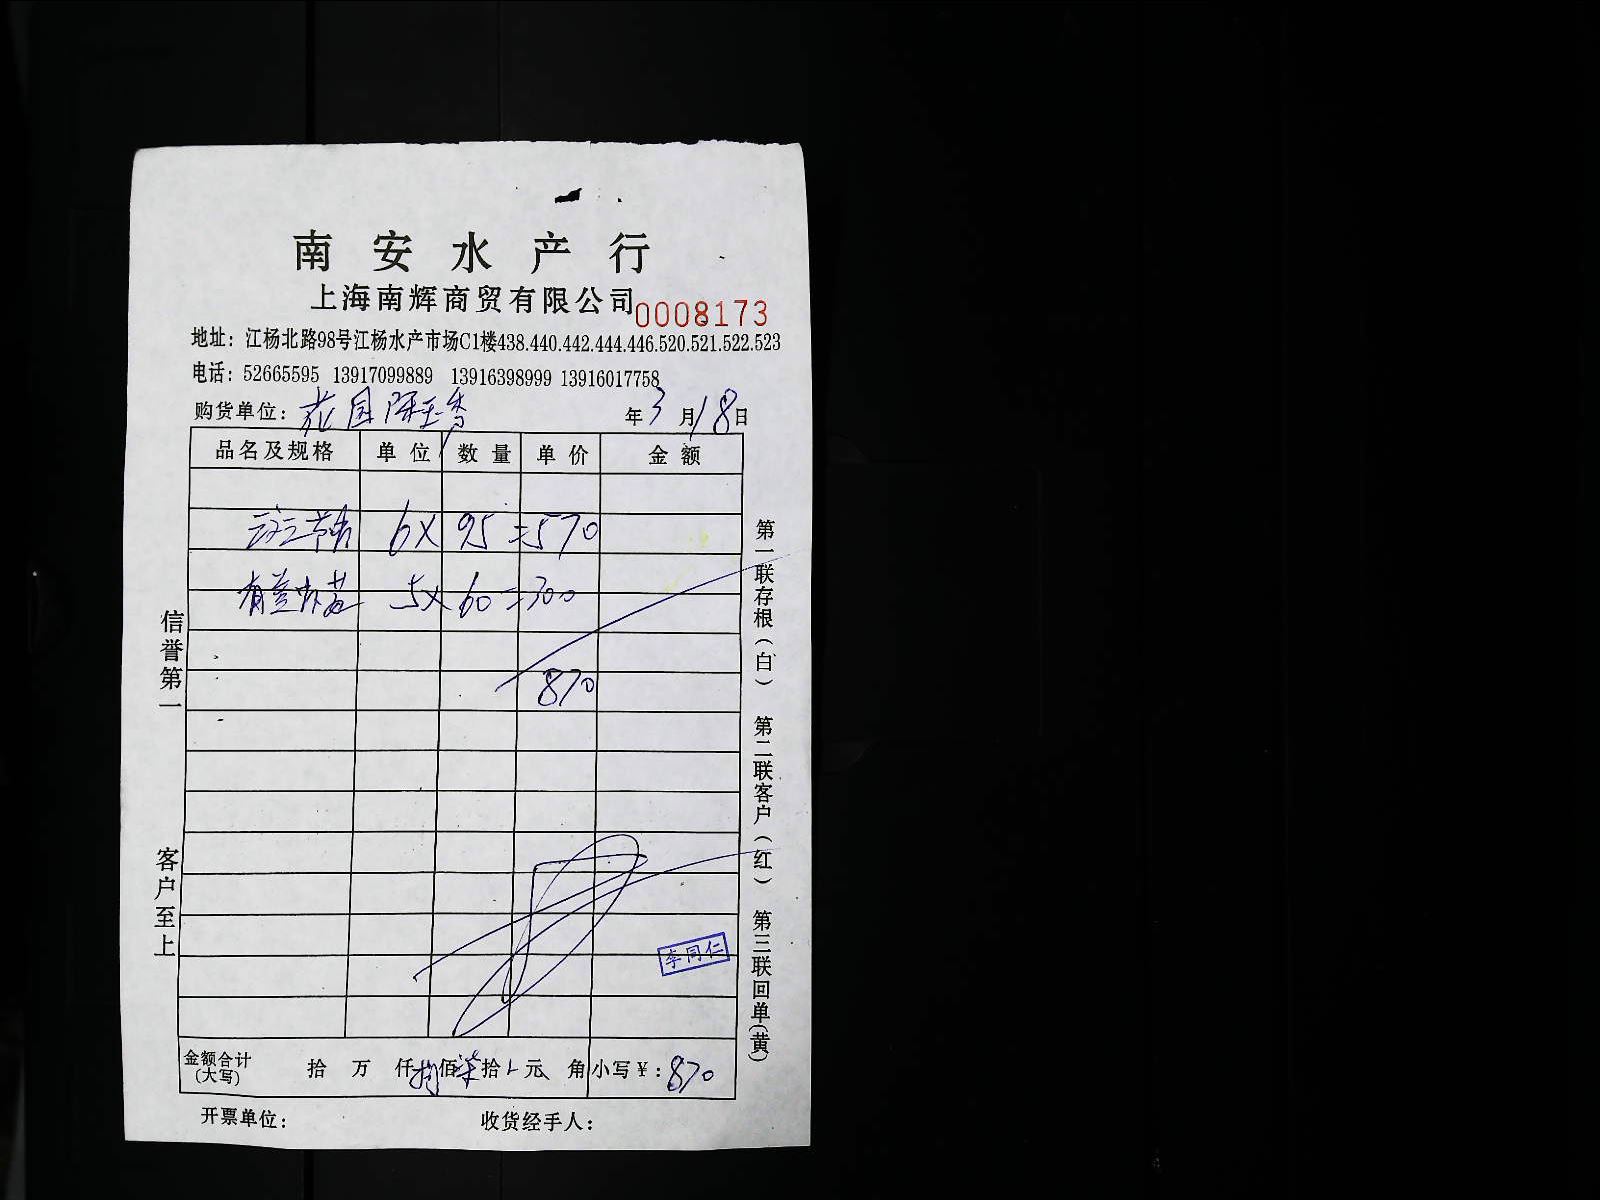 南安水产行
上海南辉商贸有限公司 0008173
地址：江杨北路98号江杨水产市场C1楼438.440.442.444.446.520.521.522.523
电话：52665595 13917099889 13916398999 13916017758
购货单位： 花园陈玉香 年3月18日
品名及规格 单位 数量 单价 金额
6X 95 =570
5X 60 =300
870
信誉第一
客户至上
第一联存根（白） 第二联客户（红） 第三联回单（黄）
李同仁
金额合计（大写） 拾 万 仟 捌佰柒拾 元 角 小写￥：870
开票单位： 收货经手人：